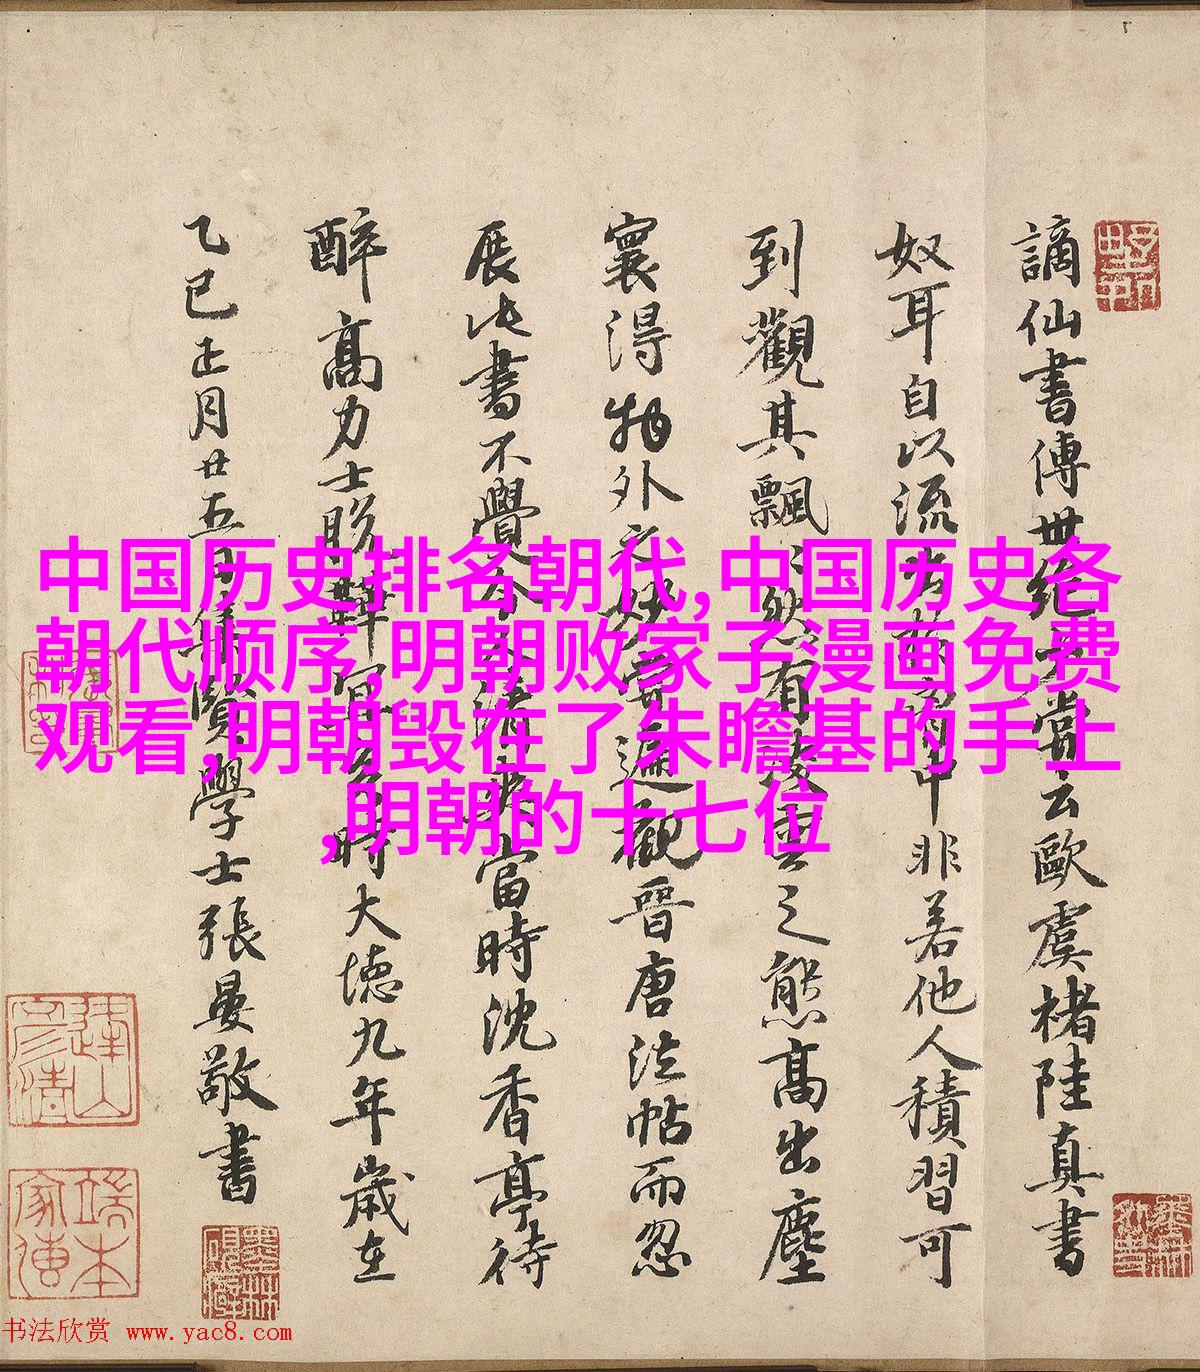 中国历史排名朝代,中国历史各
朝代顺序,明朝败家子漫画免费
观看,明朝毁在了朱瞻基的手上
,明朝的十七位
謫仙書傳世絕少嘗云歐虞褚陸真書
奴耳自以流出於胷中非若他人積習可
到觀其飄飄然有凌雲之態高出塵
寰得物外之妙嘗遍觀晉唐法帖而忽
展此書不覺令人清爽當時沈香亭待
醉高力士脫鞾宜矣時大德九年歲在
乙巳正月廿五日集賢學士張晏敬書
书法欣赏 www.yac8.com